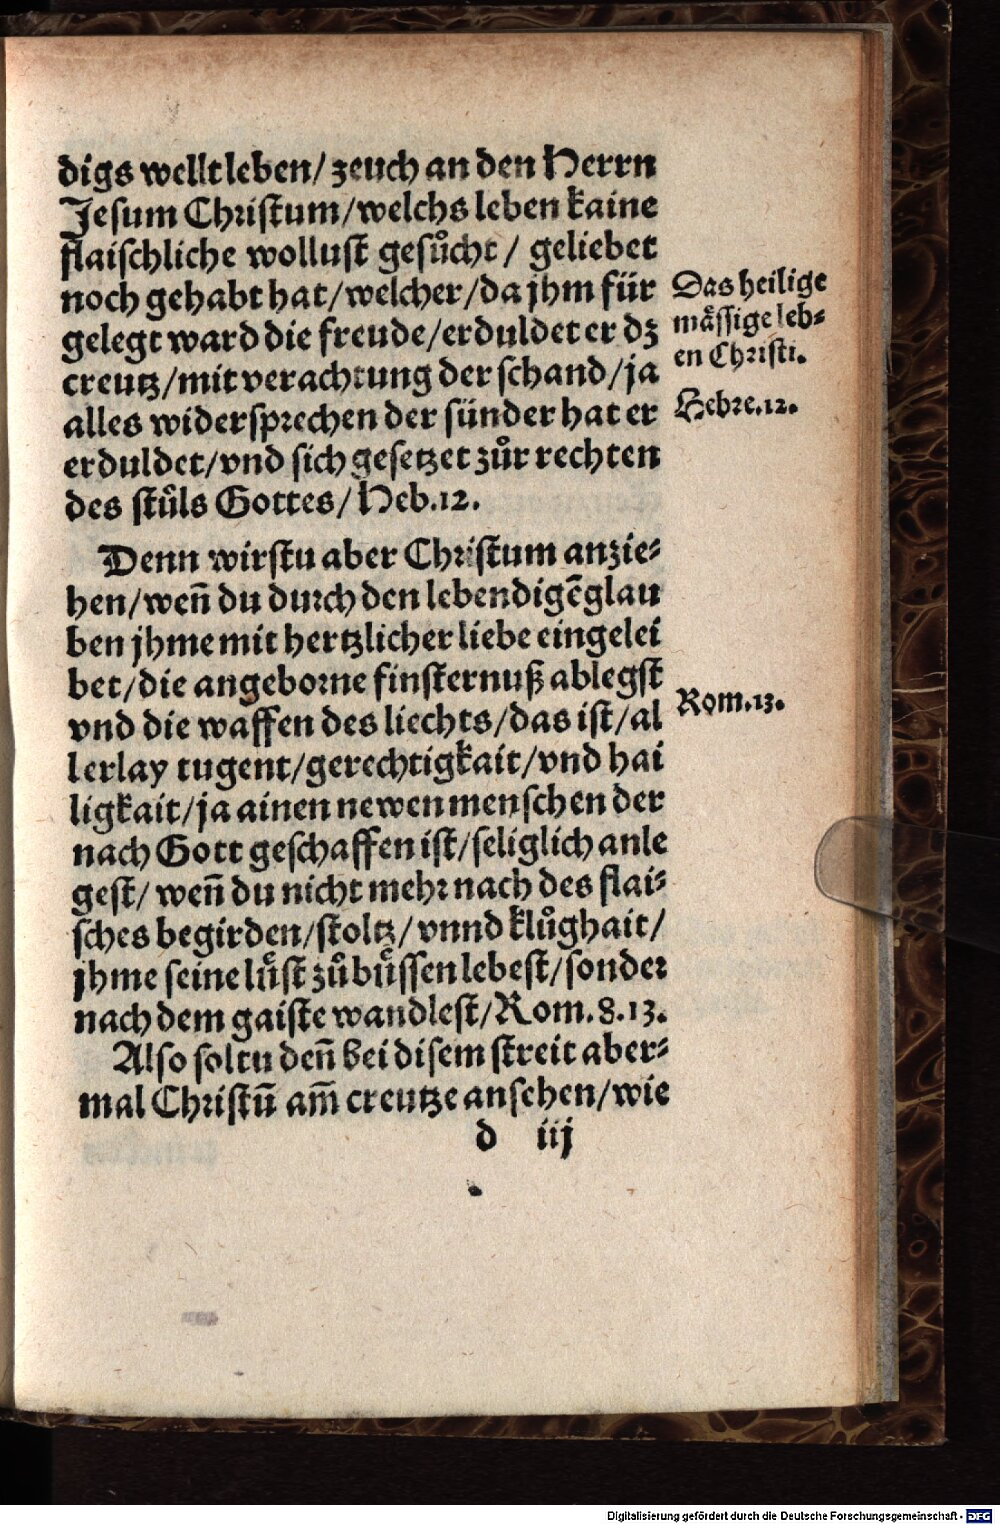 digs welltleben/ zeuch an den Herrn
Jesum Christum/welchs leben kaine
flaischliche wollust gesůcht / geliebet
noch gehabt hat/welcher/da jhm für
gelegt ward die freude/erduldet er dz
creutz/mit verachtung der schand/ja
alles widersprechen der sünder hat er
erduldet/vnd sich gesetzet zůr rechten
des stůls Gottes/ Heb.12.
Das heilige
måssige leb⸗
en Christi.
Hebre.12.
Denn wirstu aber Christum anzie⸗
hen/weñ du durch den lebendigẽ glau
ben jhme mit hertzlicher liebe eingelei
bet/die angeborne finsternuß ablegst
vnd die waffen des liechts/das ist/al
lerlay tugent/gerechtigkait/vnd hai
ligkait/ja ainen newen menschen der
nach Gott geschaffen ist/seliglich anle
gest/ weñ du nicht mehr nach des flai⸗
sches begirden/stoltz/ vnnd klůghait/
jhme seine lüst zůbüssen lebest/sonder
nach dem gaiste wandlest/Rom.8.13.
Rom.13.
Also soltu deñ bei disem streit aber⸗
mal Christū am̄ creutze ansehen/wie
d iij
Digitalisierung gefördert durch die Deutsche Forschungsgemeinschaft - DFG